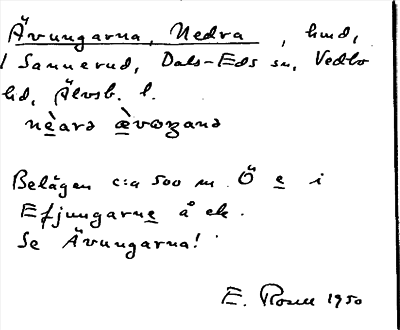 Ävungarna, Nedra, hmd,
/ Sannerud, Dals-Eds sn, Vedbo
hd, Älvsb. l.
nèarə æ̀vωŋanə
Belägen c:a 500 m Ö e i
Efjungarne å ek.
Se Ävungarna!
E. Rosell 1950